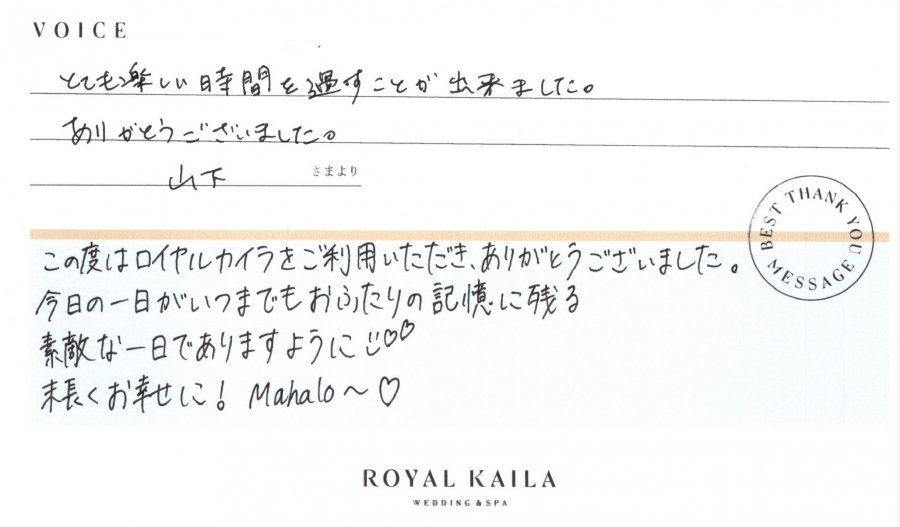 VOICE
とても楽しい時間を過すことが出来ました。
ありがとうございました。
山下 さまより
BEST THANK YOU MESSAGE
この度はロイヤルカイラをご利用いただき、ありがとうございました。
今日の一日がいつまでもおふたりの記憶に残る
素敵な一日でありますように
末長くお幸せに! Mahalo〜♡
ROYAL KAILA
WEDDING & SPA